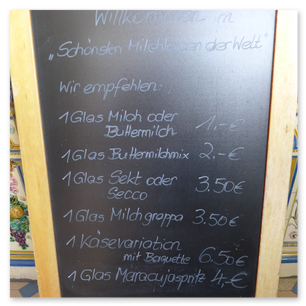 Willkommen im:
"Schönsten Milchladen der Welt"
Wir empfehlen:
1 Glas Milch oder
Buttermilch 1,-€
1 Glas Buttermilchmix 2,-€
1 Glas Sekt oder
Secco 3.50€
1 Glas Milchgrappa 3.50€
1 Käsevariation
mit Baguette 6.50€
1 Glas Maracujaspritz 4,-€